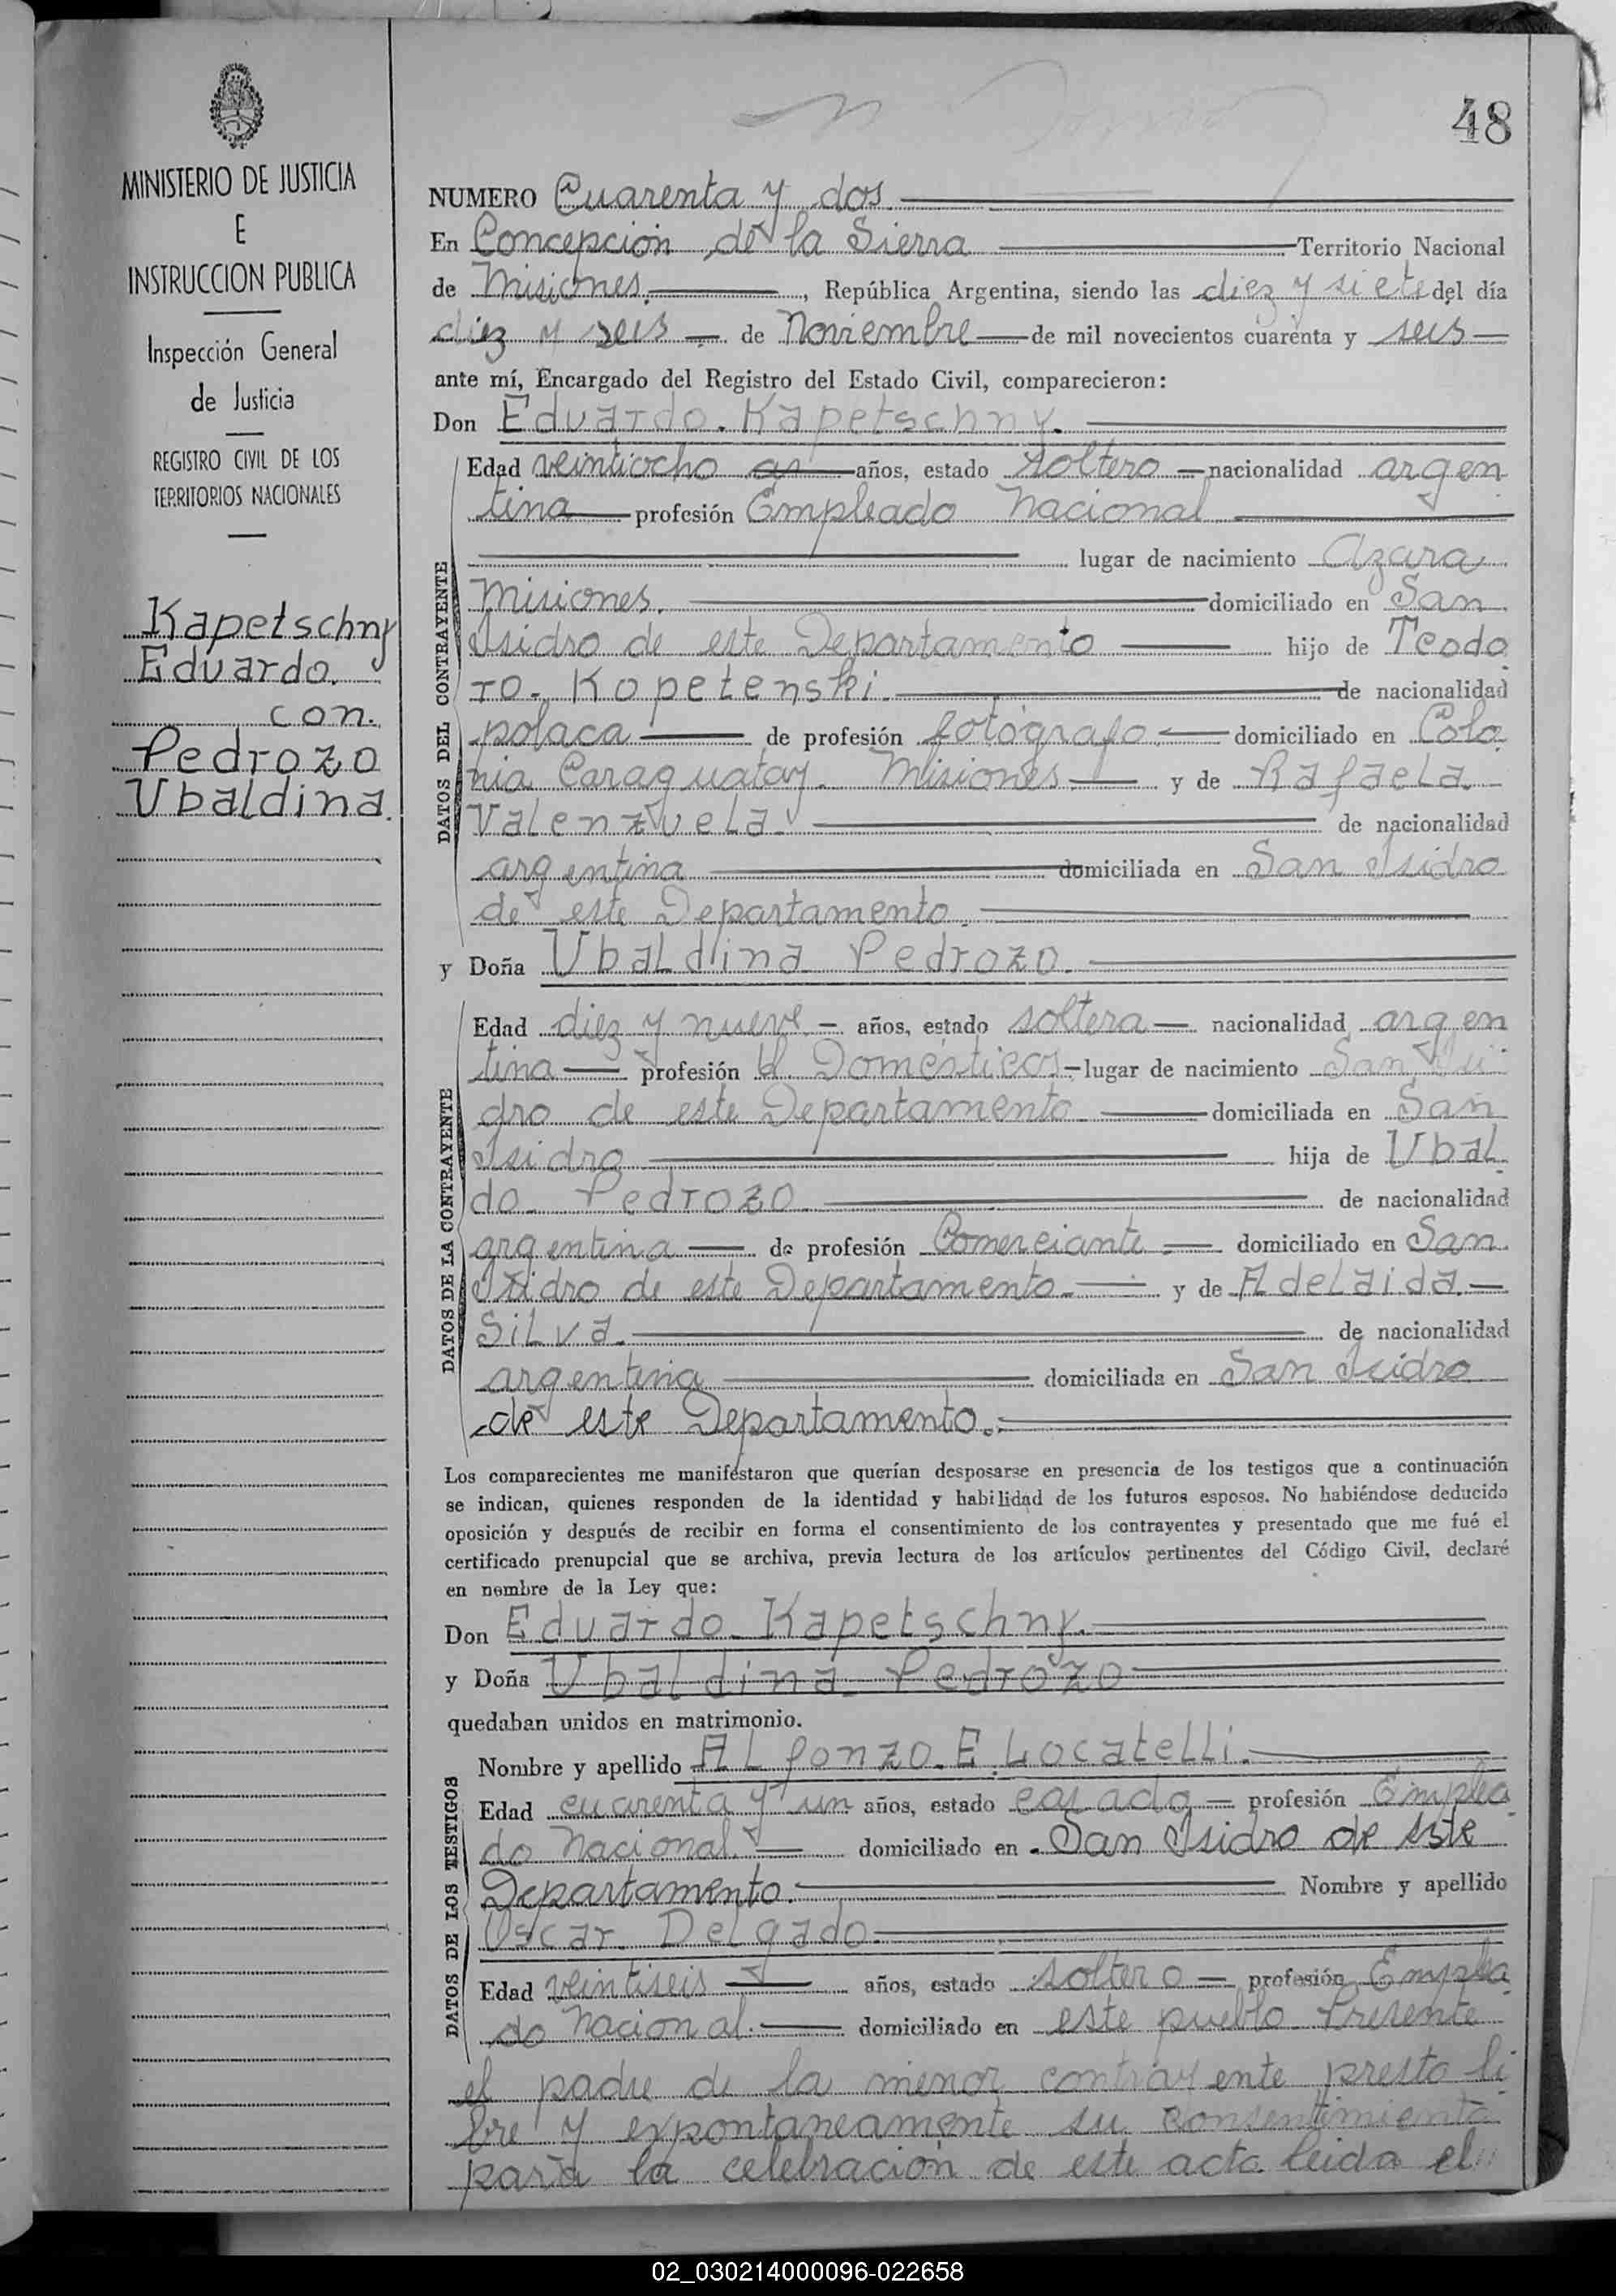 48
MINISTERIO DE JUSTICIA
E
INSTRUCCION PUBLICA
Inspección General
de Justicia
REGISTRO CIVIL DE LOS
TERRITORIOS NACIONALES
Kapetschny
Eduardo.
con.
Pedrozo
Ubaldina.
NUMERO Cuarenta y dos.
En Concepción de la Sierra Territorio Nacional
de Misiones. , República Argentina, siendo las diez y siete del día
diez y seis de Noviembre de mil novecientos cuarenta y seis
ante mí, Encargado del Registro del Estado Civil, comparecieron:
Don Eduardo. Kapetschny.
DATOS DEL CONTRAYENTE
Edad veintiocho años, estado soltero nacionalidad argen
tina profesión Empleado Nacional
lugar de nacimiento Azara
Misiones. domiciliado en San
Isidro de este Departamento hijo de Teodo
ro. Kopetenski. de nacionalidad
polaca de profesión fotógrafo. domiciliado en Colo
nia Caraguatay. Misiones y de Rafaela.
Valenzuela. de nacionalidad
argentina domiciliada en San Isidro
de este Departamento.
y Doña Ubaldina Pedrozo.
DATOS DE LA CONTRAYENTE
Edad diez y nueve años, estado soltera nacionalidad argen
tina profesión Q. Domésticos lugar de nacimiento San Isi
dro de este Departamento domiciliada en San
Isidro hija de Ubal
do. Pedrozo de nacionalidad
argentina de profesión Comerciante. domiciliado en San
Isidro de este Departamento y de Adelaida.
Silva. de nacionalidad
argentina domiciliada en San Isidro
de este Departamento.
Los comparecientes me manifestaron que querían desposarse en presencia de los testigos que a continuación
se indican, quienes responden de la identidad y habilidad de los futuros esposos. No habiéndose deducido
oposición y después de recibir en forma el consentimiento de los contrayentes y presentado que me fué el
certificado prenupcial que se archiva, previa lectura de los artículos pertinentes del Código Civil, declaré
en nombre de la Ley que:
Don Eduardo. Kapetschny.
y Doña Ubaldina. Pedrozo
quedaban unidos en matrimonio.
DATOS DE LOS TESTIGOS
Nombre y apellido Alfonzo. E. Locatelli.
Edad cuarenta y un años, estado casado profesión Emplea
do Nacional. domiciliado en San Isidro de este
Departamento. Nombre y apellido
Oscar. Delgado.
Edad veintiseis años, estado soltero profesión Emplea
do Nacional. domiciliado en este pueblo Presente
el padre de la menor contrayente presto li
bre y expontaneamente su consentimiento
para la celebración de este acto. Leida el
02_030214000096-022658